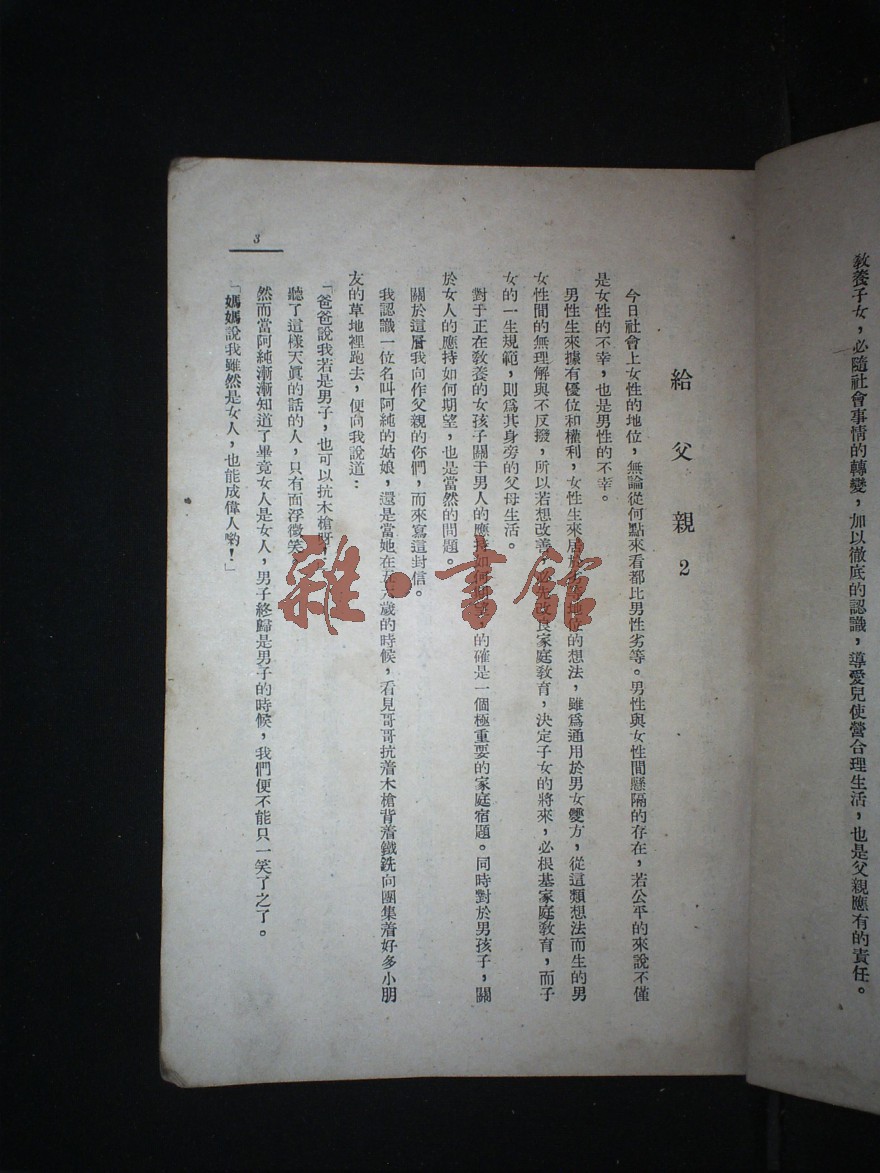 教養子女，必隨社會事情的轉變，加以徹底的認識，導愛兒使營合理生活，也是父親應有的責任。
給父親2
今日社會上女性的地位，無論從何點來看都比男性劣等。男性與女性間懸隔的存在，若公平的來說不僅
是女性的不幸，也是男性的不幸。
男性生來據有優位和權利，女性生來居於劣等地位的想法，雖爲通用於男女雙方，從這類想法而生的男
女性間的無理解與不反撥，所以若想改善，必先改良家庭敎育，決定子女的將來，必根基家庭敎育，而子
女的一生規範，則爲其身旁的父母生活。
對于正在敎養的女孩子關于男人的應持如何期望，的確是一個極重要的家庭宿題。同時對於男孩子，關
於女人的應持如何期望，也是當然的問題。
關於這層我向作父親的你們，而來寫這封信。
我認識一位名叫阿純的姑娘，還是當她在五六歲的時候，看見哥哥抗着木槍背着鐵銑向團集着好多小朋
友的草地裡跑去，便向我說道：
「爸爸說我若是男子，也可以抗木槍呀
聽了這樣天眞的話的人，只有面浮微笑
然而當阿純漸漸知道了畢竟女人是女人，男子終歸是男子的時候，我們便不能只一笑了之了。
「媽媽說我雖然是女人，也能成偉人喲！」
3
雜·書館